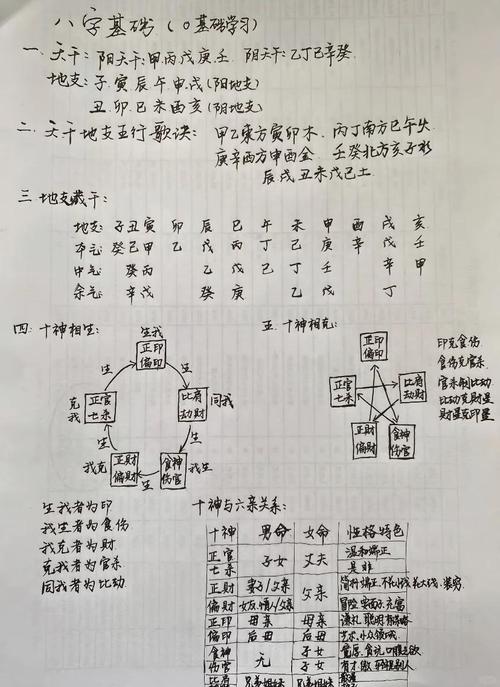 八字基础(0基础学习)
一、天干:阳天干:甲丙戊庚壬 阴天干:乙丁己辛癸
地支:子寅辰午申戌(阳地支)
丑卯巳未酉亥(阴地支)
二、天干地支五行歌诀:甲乙东方寅卯木、丙丁南方巳午火
庚辛西方申酉金 壬癸北方亥子水
辰戌丑未戊己土
三、地支藏干:
地支:子丑寅卯辰巳午未申酉戌亥
本气:癸己甲乙戊丙丁己庚辛戊壬
中气:癸丙乙戊己丁壬辛甲
余气:辛戊癸庚乙戊丁
四、十神相生:
生我
正印
偏印
生
生
克我
正官
七杀
比肩
劫财
同我
生
生
我克
正财
偏财
生
食神
伤官
我生
生我者为印
我生者为食伤
我克者为财
克我者为官杀
同我者为比劫
五、十神相克:
正印
偏印
正官
七杀
比肩
劫财
正财
偏财
食神
伤官
印克食伤
食伤克官杀
官杀制比劫
比劫克财星
财星克印星
十神与六亲关系:
十神 男命 女命 性格特色
正官 子女 丈夫 温和端正
七杀 是非
正财 妻子/父亲 父亲
偏财
正印 母亲 母亲
偏印 后母 后母
食神 无 子女
伤官
比肩 兄弟姐妹 兄弟姐妹